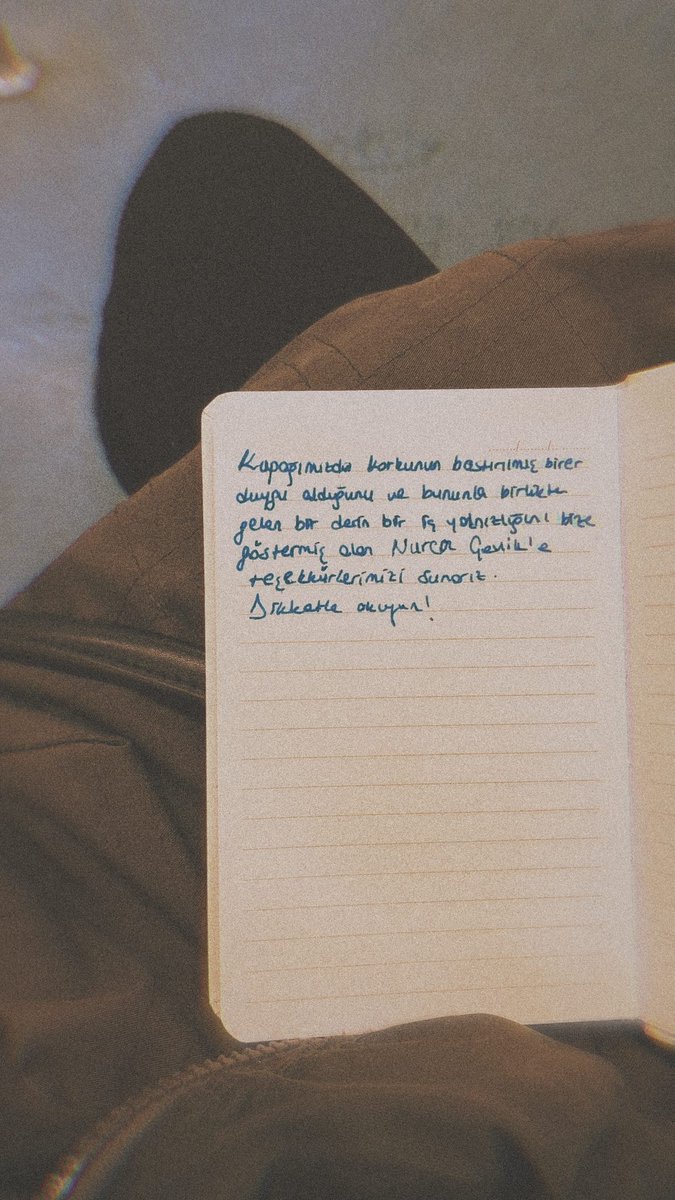 Kapağımızda korkunun bastırılmış birer
duygu olduğunu ve bununla birlikte
gelen bir derin bir iç yalnızlığını bize
göstermiş olan Nurcan Çevik'e
teşekkürlerimizi sunarız.
Dikkatle okuyun!